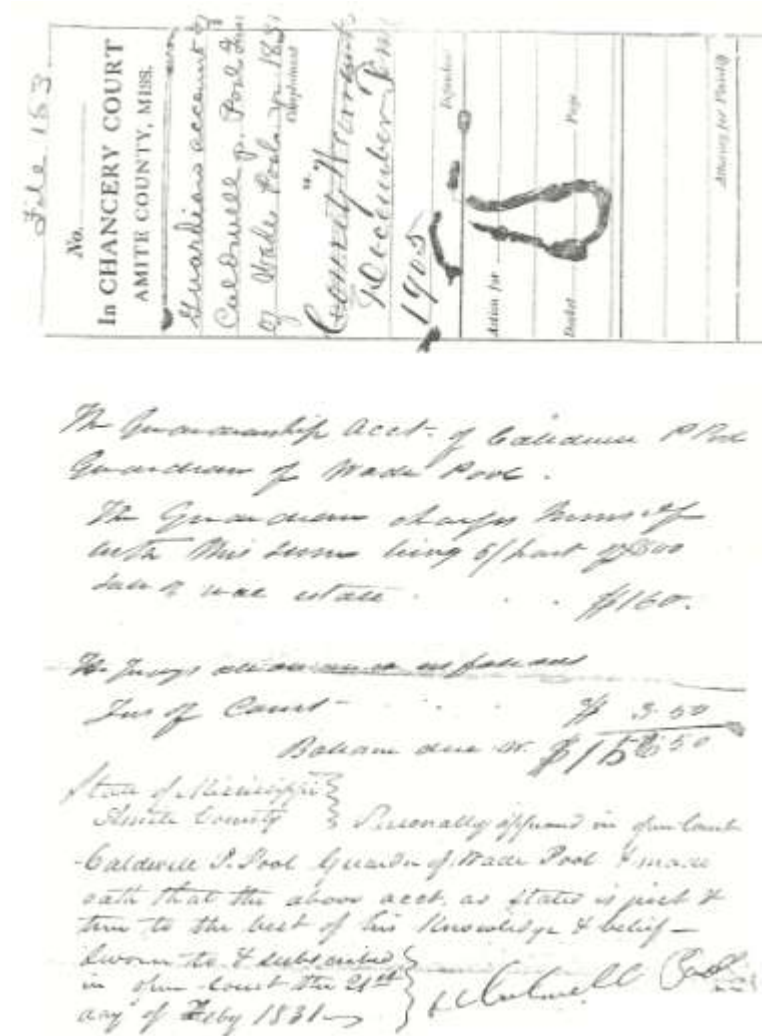 File 153
No.
In CHANCERY COURT
AMITE COUNTY, MISS.
Guardians account of
Caldwell p. Pool Guar
of Wade Pool yr 1831
Complainant
vs.
County
December
1905
Defendant
Action for
Docket Page
Attorney for Plaintiff
The Guardianship acct. of Caldwell P Pool
Guardian of Wade Pool.
The Guardian charges himself
with this sum being 5/ part of $800
sale of real estate . . . $160.
He prays allowance as follows
Fees of Court - . . . $ 3.50
Balance due Wr. $156.50
State of Mississippi
Amite County } Personally appeared in open Court
Caldwell P. Pool Guardn of Wade Pool & made
oath that the above acct. as stated is just &
true to the best of his Knowledge & belief -
Sworn to & subscribed
in open Court the 21st
day of Feby 1831 Caldwell Pool